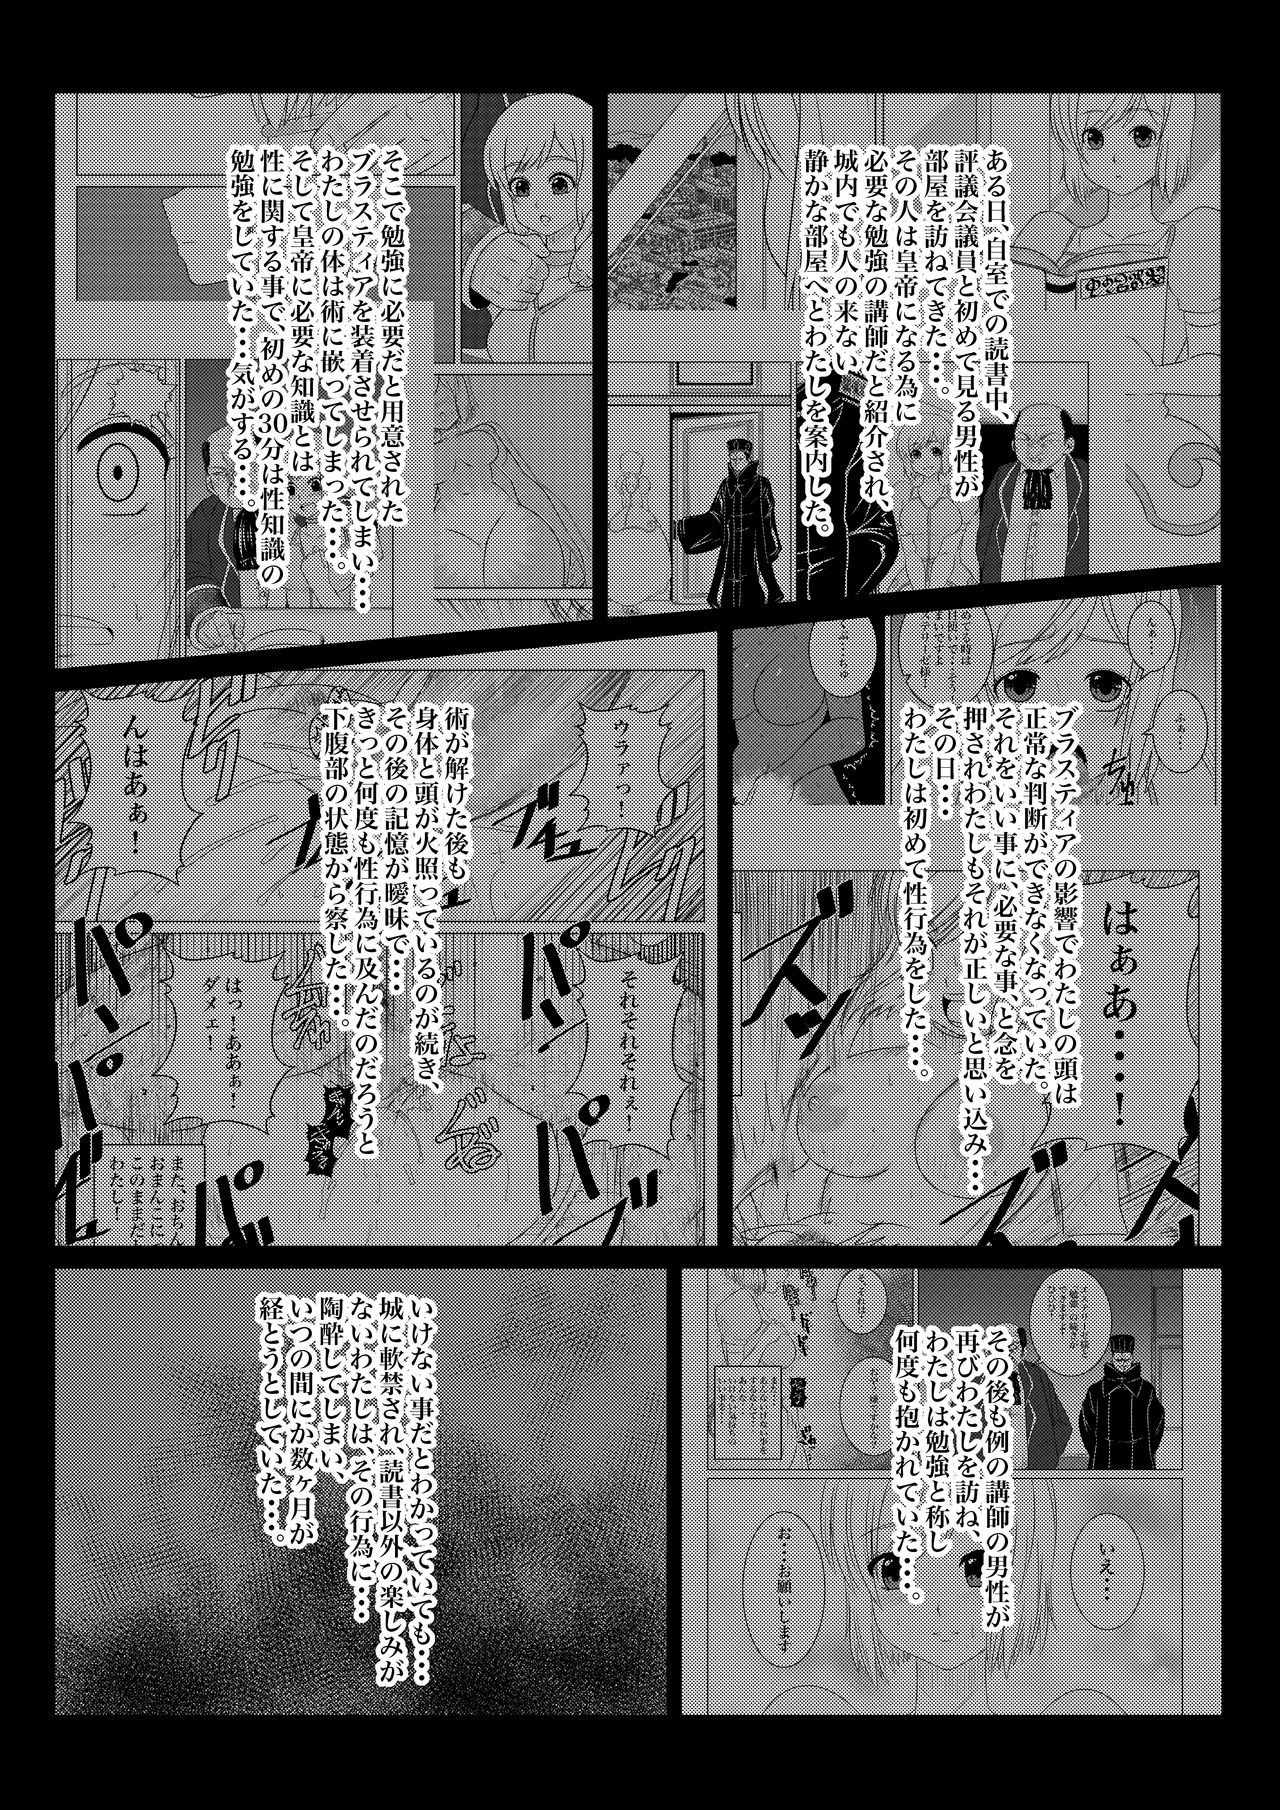 ある日、自室での読書中、
評議会議員と初めて見る男性が
部屋を訪ねてきた・・・。
その人は皇帝になる為に
必要な勉強の講師だと紹介され、
城内でも人の来ない
静かな部屋へとわたしを案内した。
そこで勉強に必要だと用意された
ブラスティアを装着させられてしまい・・・
わたしの体は術に嵌ってしまった・・・。
そして皇帝に必要な知識とは
性に関する事で、初めの30分は性知識の
勉強をしていた・・・気がする・・・。
んぁ…
ふぁ…
ブラスティアの影響でわたしの頭は
正常な判断ができなくなっていた。
それをいい事に、必要な事、と念を
押されわたしもそれが正しいと思い込み・・・
その日・・・
わたしは初めて性行為をした・・・。
はぁぁ・・・！
ウラァっ！
んはあぁ！
術が解けた後も
身体と頭が火照っているのが続き、
その後の記憶が曖昧で・・・
きっと何度も性行為に及んだのだろうと
下腹部の状態から察した・・・。
それそれそれぇ！
はっ！ああぁ！
ダメェ！
また、おちん
おまんこに
このままだ
わたし！
その後も例の講師の男性が
再びわたしを訪ね、
わたしは勉強と称し
何度も抱かれていた・・・。
いえ…
お…お願いします
いけない事だとわかっていても・・・
城に軟禁され、読書以外の楽しみが
ないわたしは、その行為に・・・
陶酔してしまい、
いつの間にか数ヶ月が
経とうとしていた・・・。